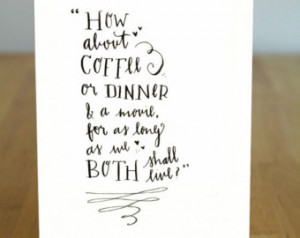 "HOW
about
COFFEE
or DINNER
& a movie,
for as long
as we
BOTH shall
live?"